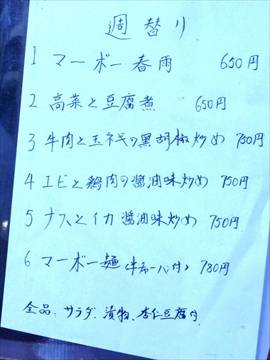 週替り
1 マーボー春雨 650円
2 高菜と豆腐煮 650円
3 牛肉と玉ネギの黒胡椒炒め 750円
4 エビと鶏肉の醤油味炒め 750円
5 ナスとイカ醤油味炒め 750円
6 マーボー麺(半チャーハン付) 780円
全品、サラダ、漬物、杏仁豆腐付